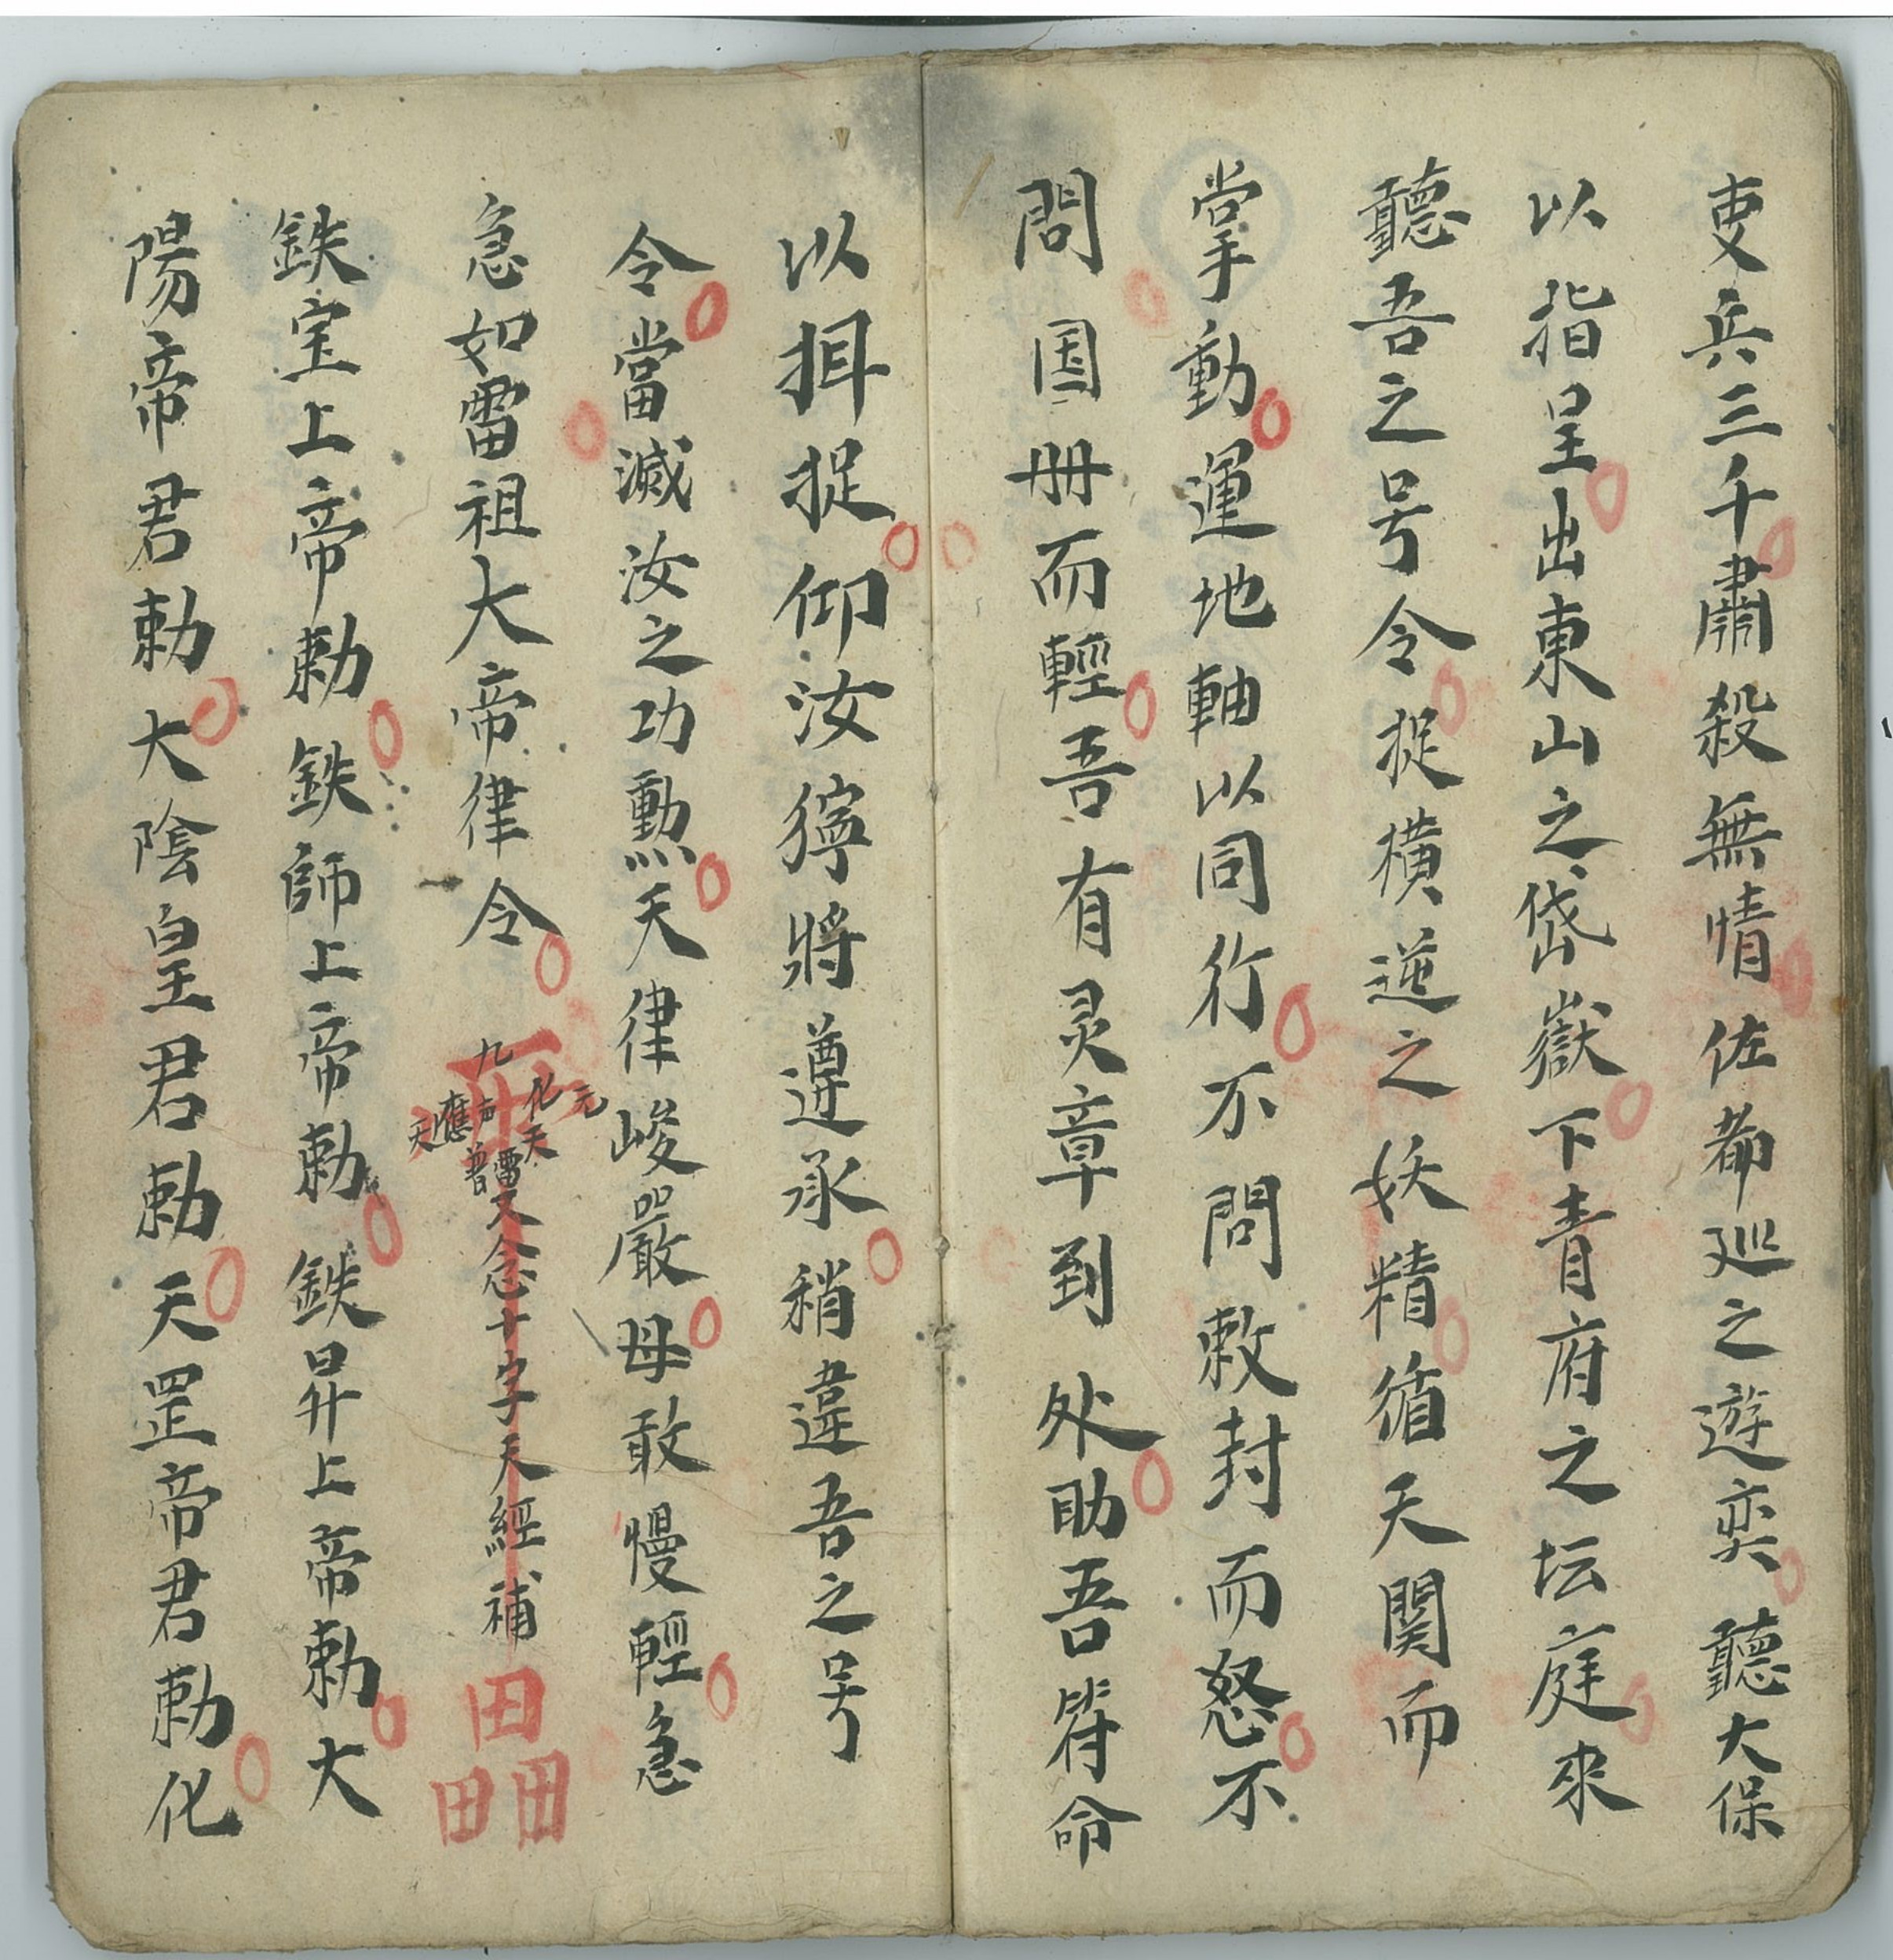 吏兵三千肅殺無情佐都巡之遊奕聽大保
以指呈出東山之岱嶽下青府之坛庭來
聽吾之号令捉横逆之妖精循天関而
掌動運地軸以同行不問敕封而怒不
問国册而輕吾有灵章到处助吾符命
以捀捉仰汝獰將遵承稍違吾之号
令當滅汝之功勳天律峻嚴母敢慢輕急
急如雷祖大帝律令
九天應元雷声普化天
又念十字天經補
田
田田
鉄宝上帝勅鉄師上帝勅鉄昇上帝勅大
陽帝君勅大陰皇君勅天罡帝君勅化